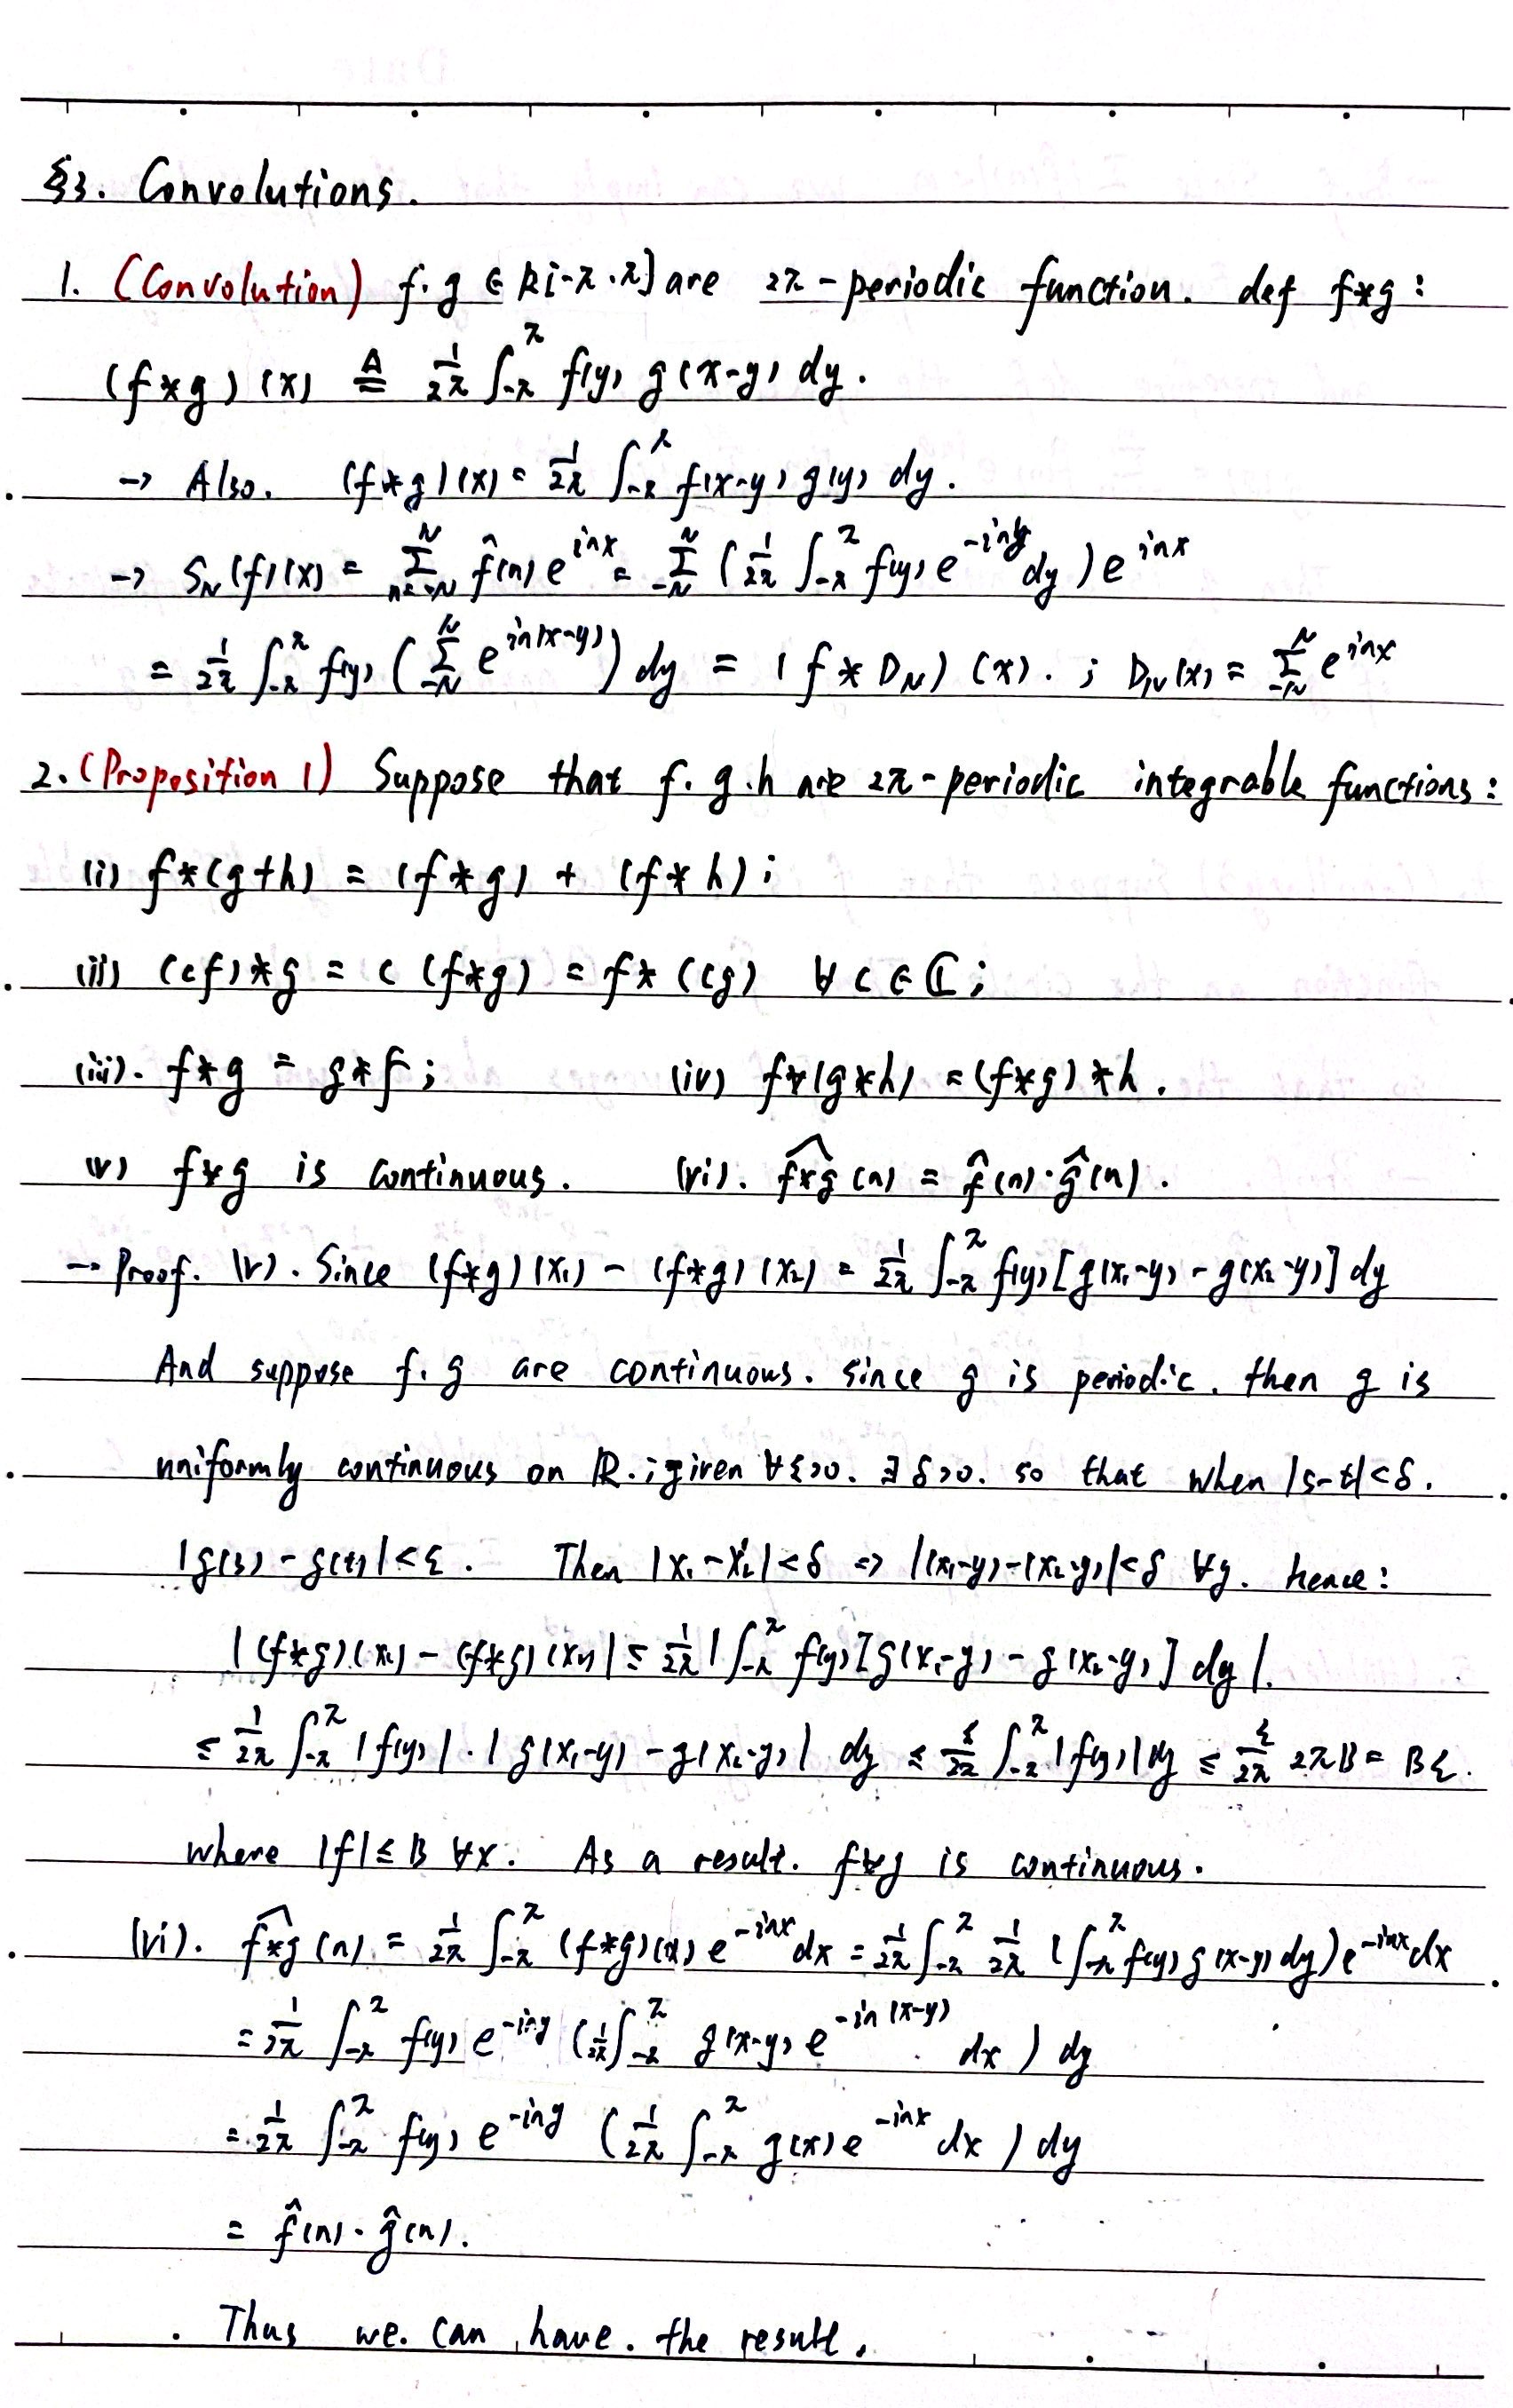 §3. Convolutions.
1. (Convolution) f. g ∈ R[-π.π] are 2π-periodic function. def f*g:
(f*g)(x) ≜ 1/2π ∫_{-π}^{π} f(y) g(x-y) dy.
→ Also. (f*g)(x) = 1/2π ∫_{-π}^{π} f(x-y) g(y) dy.
→ S_N(f)(x) = Σ_{n=-N}^{N} f̂(n) e^{inx} = Σ_{-N}^{N} (1/2π ∫_{-π}^{π} f(y) e^{-iny} dy) e^{inx}
= 1/2π ∫_{-π}^{π} f(y) (Σ_{-N}^{N} e^{in(x-y)}) dy = (f * D_N)(x). ; D_N(x) = Σ_{-N}^{N} e^{inx}
2. (Proposition 1) Suppose that f. g. h are 2π-periodic integrable functions:
(i) f*(g+h) = (f*g) + (f*h);
(ii) (cf)*g = c(f*g) = f*(cg) ∀ c ∈ ℂ;
(iii). f*g = g*f; (iv) f*(g*h) = (f*g)*h.
(v) f*g is continuous. (vi). \widehat{f*g}(n) = f̂(n)·ĝ(n).
→ Proof. (v). Since (f*g)(x₁) - (f*g)(x₂) = 1/2π ∫_{-π}^{π} f(y)[g(x₁-y) - g(x₂-y)] dy
And suppose f. g are continuous. since g is periodic. then g is
uniformly continuous on ℝ.; given ∀ε>0. ∃δ>0. so that when |s-t|<δ.
|g(s) - g(t)|<ε. Then |x₁-x₂|<δ => |(x₁-y)-(x₂-y)|<δ ∀y. hence:
|(f*g)(x₁) - (f*g)(x₂)| ≤ 1/2π |∫_{-π}^{π} f(y)[g(x₁-y) - g(x₂-y)] dy|.
≤ 1/2π ∫_{-π}^{π} |f(y)|·|g(x₁-y) - g(x₂-y)| dy ≤ ε/2π ∫_{-π}^{π} |f(y)| dy ≤ ε/2π 2πB = Bε.
where |f|≤B ∀x. As a result. f*g is continuous.
(vi). \widehat{f*g}(n) = 1/2π ∫_{-π}^{π} (f*g)(x) e^{-inx} dx = 1/2π ∫_{-π}^{π} 1/2π (∫_{-π}^{π} f(y) g(x-y) dy) e^{-inx} dx
= 1/2π ∫_{-π}^{π} f(y) e^{-iny} (1/2π ∫_{-π}^{π} g(x-y) e^{-in(x-y)} dx) dy
= 1/2π ∫_{-π}^{π} f(y) e^{-iny} (1/2π ∫_{-π}^{π} g(x) e^{-inx} dx) dy
= f̂(n)·ĝ(n).
Thus we. can have. the result.